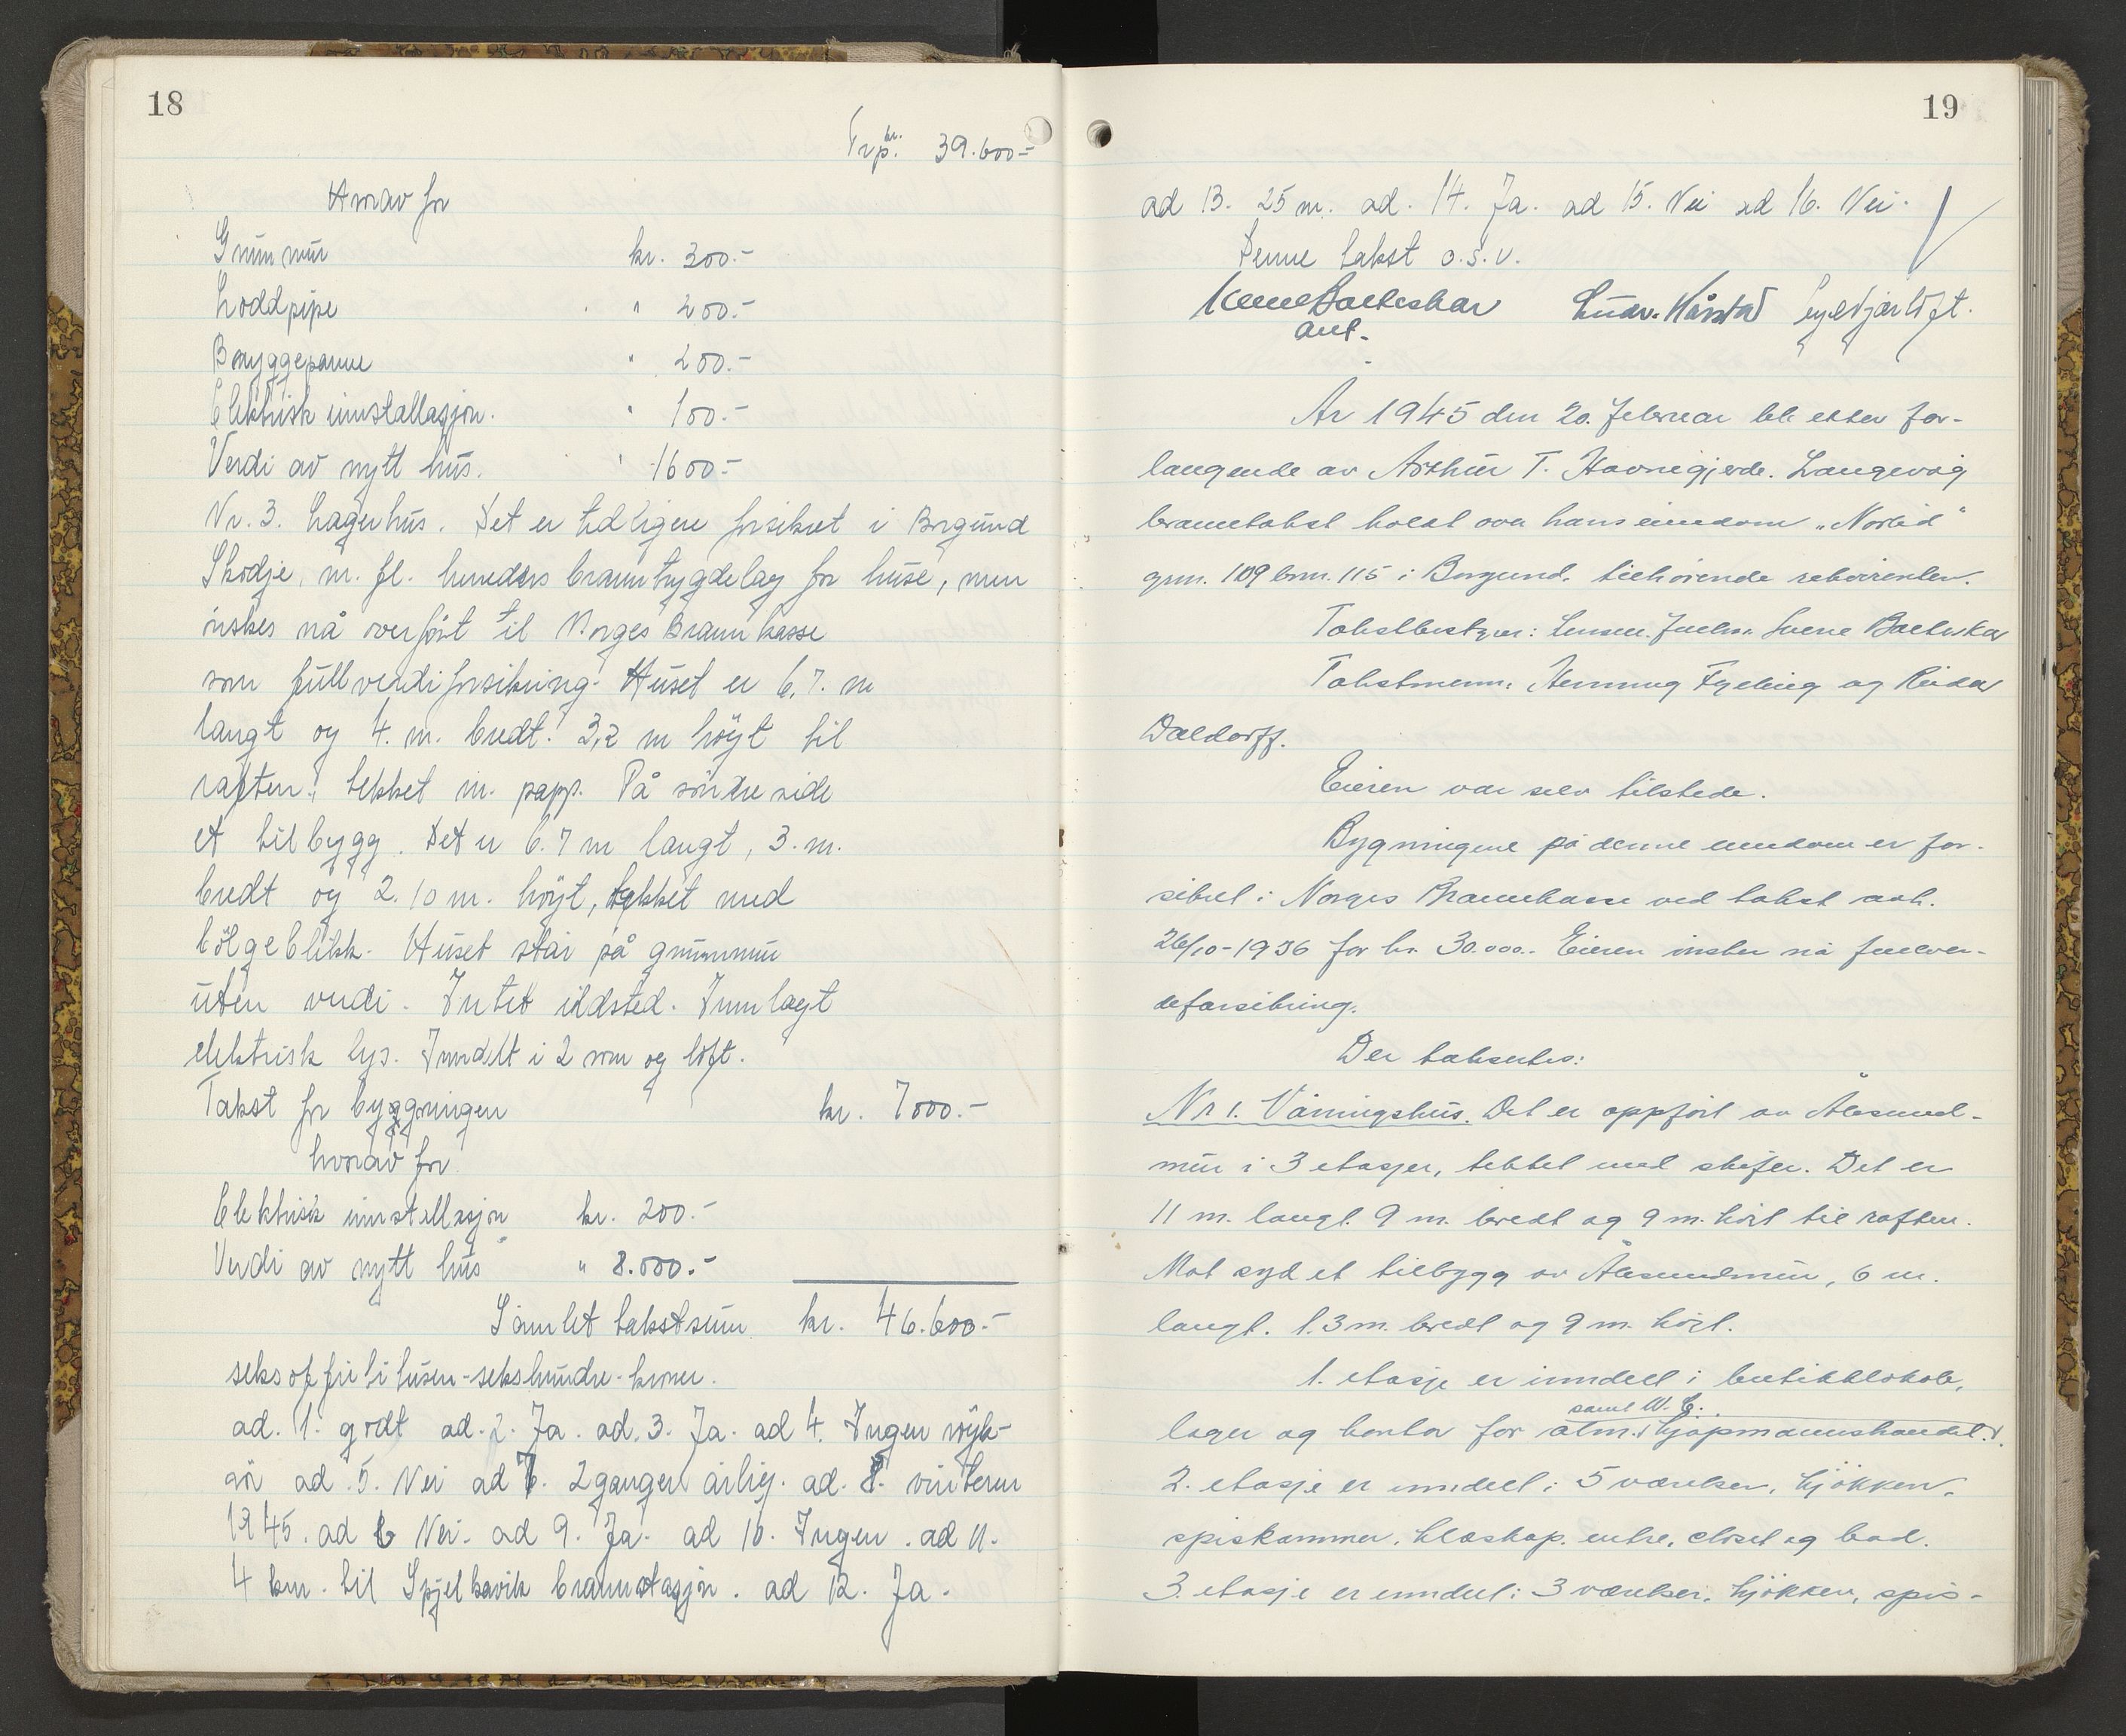 18
Trp. kr. 39.600.-
Hvorav for
Grunnmur kr. 300.-
Loddpipe " 200.-
Bryggepanne " 200.-
Elektrisk innstallasjon. " 100.-
Verdi av nytt hus. " 1600.-
Nr. 3. Lagerhus. Det er tidligere forsikret i Borgund
Skodje, m. fl. herreders branntrygdelag for huse, men
ønskes nå overført til Norges Brannkasse
som fullverdiforsikring. Huset er 6,7. m
langt og 4. m. bredt. 3,2 m höyt til
raften, tekket m. papp. På söndre side
et tilbygg. Det er 6.7 m langt, 3. m.
bredt og 2.10 m. höyt, tekket med
bölgeblikk. Huset står på grunnmur
uten verdi. Intet ildsted. Innlagt
elektrisk lys. Inndelt i 2 rom og loft.
Takst for byggningen kr. 7000.-
hvorav for
Elektrisk innstallasjon kr. 200.-
Verdi av nytt hus " 8.000.-
Samlet takstsum kr. 46.600.-
seks og førti tusen-sekshundre-kroner.
ad. 1. godt ad. 2. Ja. ad. 3. Ja. ad 4. Ingen röyk-
rör ad. 5. Nei ad 7. 2 ganger årlig. ad. 8. vinteren
1945. ad 6 Nei. ad 9. Ja. ad 10. Ingen. ad 11.
4 km. til Spjelkavik brannstasjon. ad 12. Ja.
19
ad 13. 25 m. ad. 14. Ja. ad 15. Nei ad 16. Nei.
Denne takst o.s.v.
Sverre Balteskar Ludv. Hårstad
aut.
År 1945 den 20. februar ble etter for-
langende av Arthur T. Havnegjerde. Langevåg
branntakst holdt over hans eiendom "Norlid"
gnr. 109 bnr. 115 i Borgund. tilhörende rekvirenten.
Takstbestyrer: Lensm. fullm. Sverre Balteskar
Takstmenn: Henning Fylling og Reidar
Waldorff.
Eieren var selv tilstede.
Bygningene på denne eiendom er for-
sikret i Norges Brannkasse ved takst avh.
26/10-1936 for kr. 30.000.- Eieren ønsker nå fullver-
deforsikring.
Der taksertes:
Nr 1. Våningshus. Det er oppfört av Ålesund-
mur i 3 etasjer, tekket med skifer. Det er
11 m. langt. 9 m. bredt og 9 m. höit til raften.
Mot syd et tilbygg av Ålesundmur, 6 m.
langt. 1.3 m. bredt og 9 m. höit.
1. etasje er inndelt i butikklokale,
samt W. C.
lager og kontor for alm. kjöpmannshandel.
2. etasje er inndelt i 5 værelser, kjökken,
spiskammer, kleskap, entre, closet og bad.
3. etasje er inndelt i 3 værelser, kjökken, spis-